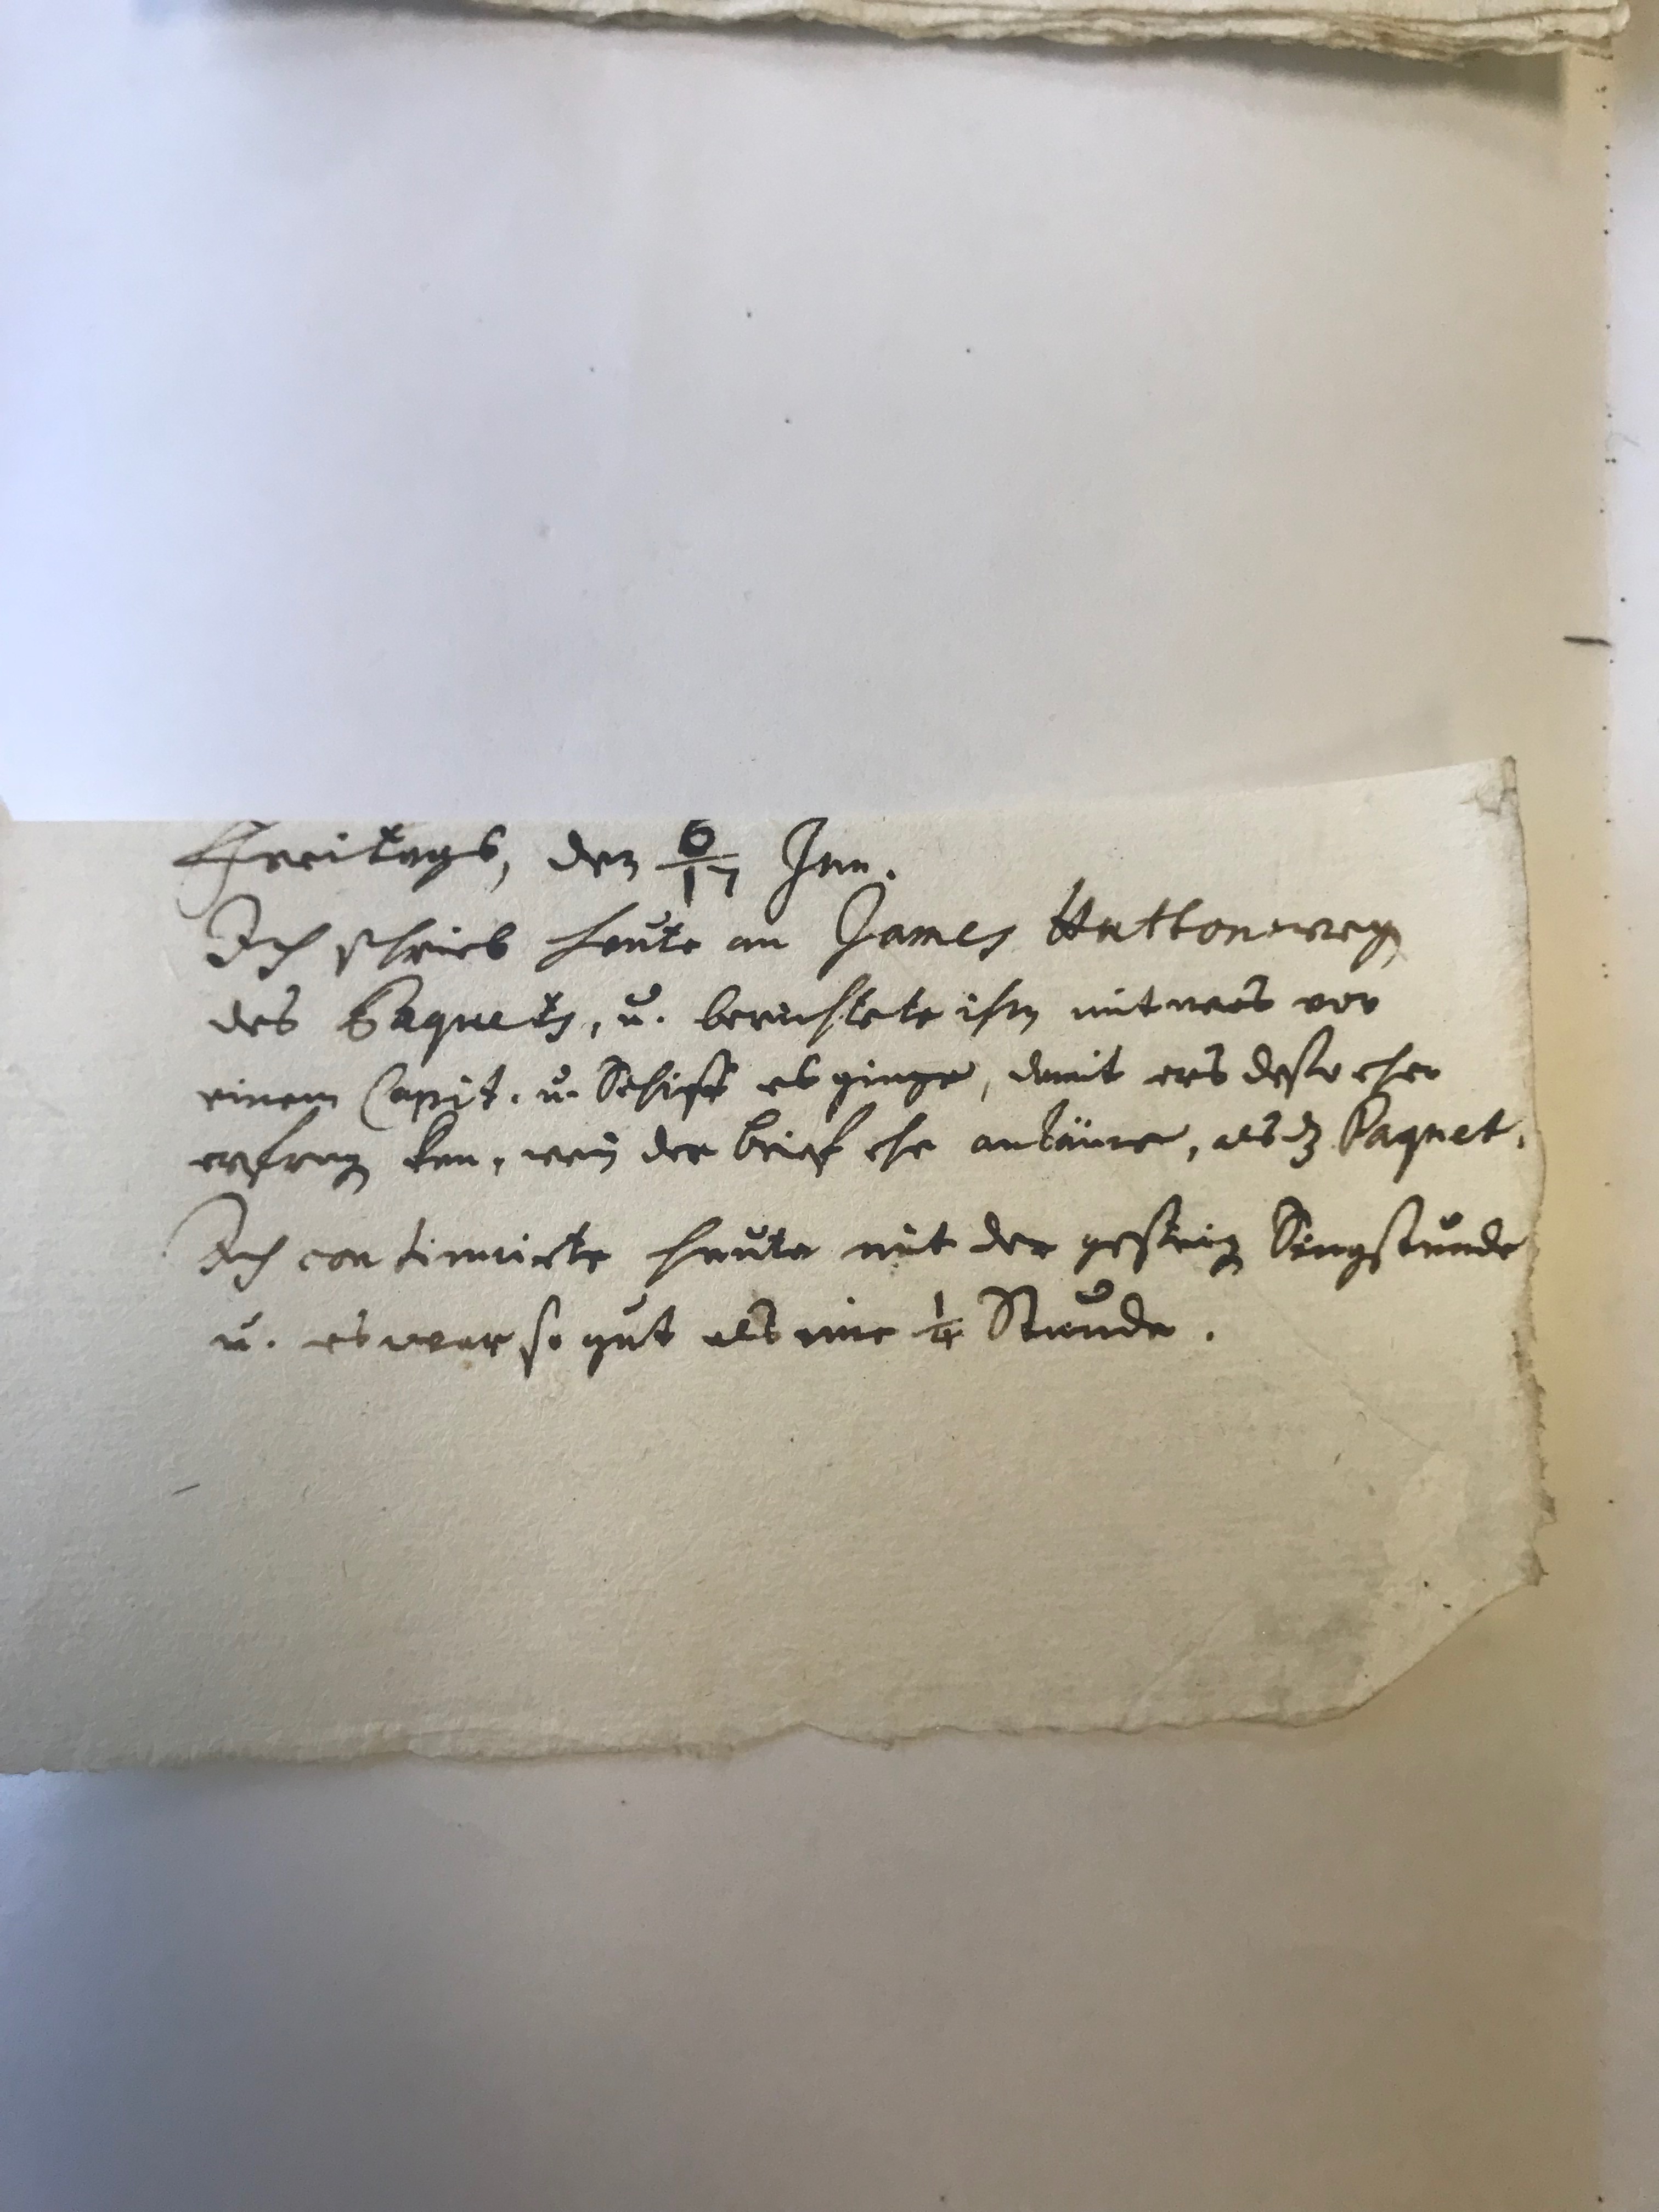 Freitags, den 6/17 Jan.
Ich schrieb heute an James Hutton weg
des Paquets, u. berichtete ihm mit was vor
einem Capit. u. Schiff es ginge, damit ers desto eher
erfrag kan, weñ der brief ehe ankäme, als dz Paquet.
Ich continuirte heute mit der gestrig Singstunde
u. es war so gut als eine 1/4 Stunde.